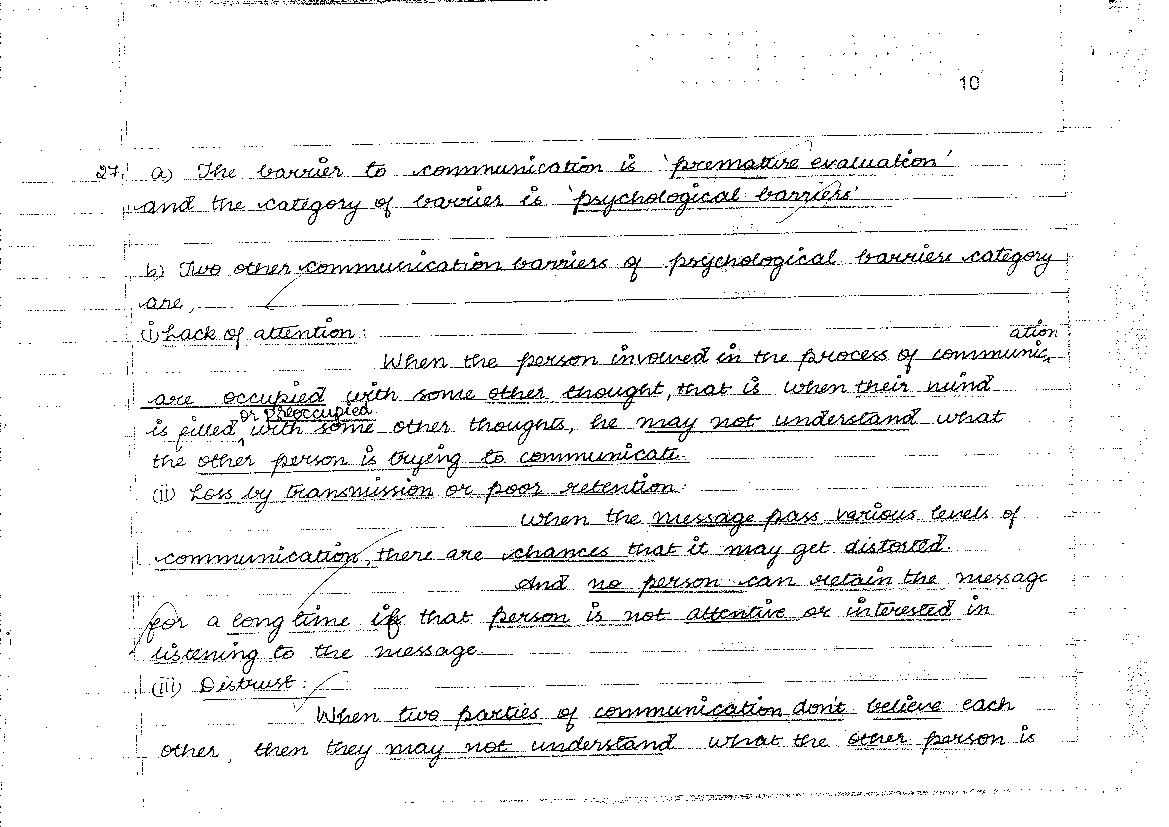 10
27. a) The barrier to communication is 'premature evaluation'
and the category of barrier is 'psychological barriers'
b) Two other communication barriers of psychological barriers category
are,
i) Lack of attention:
ation
When the person involved in the process of communic
are occupied with some other thought, that is when their mind
or preoccupied
is filled with some other thoughts, he may not understand what
the other person is trying to communicate.
(ii) Loss by transmission or poor retention:
When the message pass various levels of
communication, there are chances that it may get distorted.
And no person can retain the message
for a long time if that person is not attentive or interested in
listening to the message
(iii) Distrust:
When two parties of communication don't believe each
other, then they may not understand what the other person is